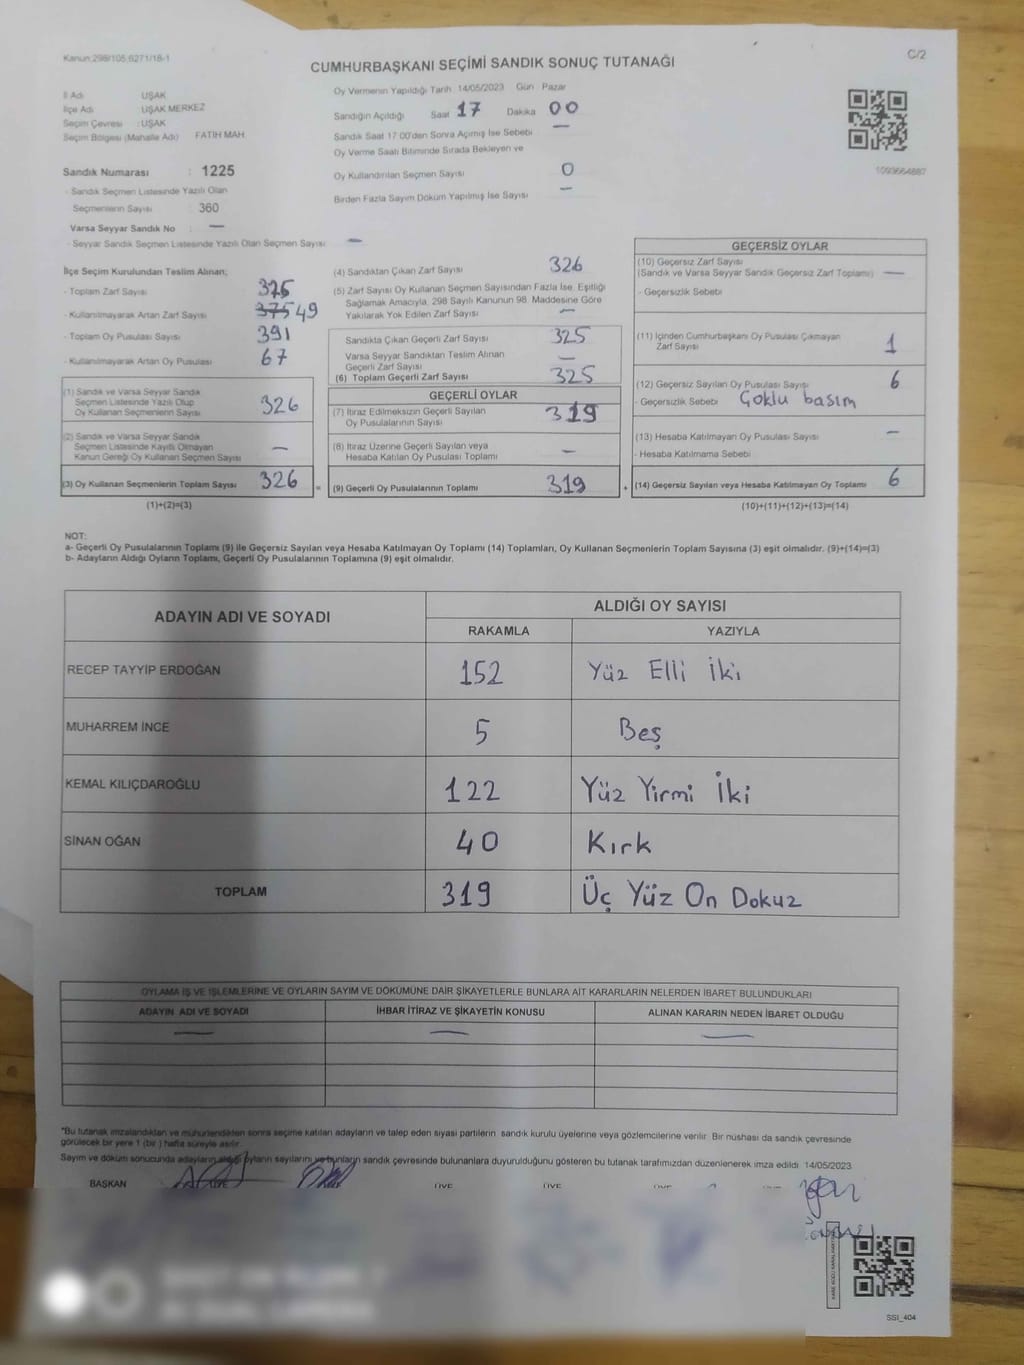 Kanun:298/105,6271/18-1
C/2
CUMHURBAŞKANI SEÇİMİ SANDIK SONUÇ TUTANAĞI
İl Adı UŞAK
İlçe Adı : UŞAK MERKEZ
Seçim Çevresi : UŞAK
Seçim Bölgesi (Mahalle Adı) FATİH MAH.
Sandık Numarası : 1225
- Sandık Seçmen Listesinde Yazılı Olan
Seçmenlerin Sayısı : 360
Varsa Seyyar Sandık No : —
- Seyyar Sandık Seçmen Listesinde Yazılı Olan Seçmen Sayısı : —
Oy Vermenin Yapıldığı Tarih 14/05/2023 Gün Pazar
Sandığın Açıldığı Saat 17 Dakika 00
Sandık Saat 17:00'den Sonra Açımış İse Sebebi —
Oy Verme Saati Bitiminde Sırada Bekleyen ve
Oy Kullandırılan Seçmen Sayısı 0
Birden Fazla Sayım Döküm Yapılmış İse Sayısı —
1093664887
İlçe Seçim Kurulundan Teslim Alınan;
- Toplam Zarf Sayısı 375
- Kullanılmayarak Artan Zarf Sayısı 375 49
- Toplam Oy Pusulası Sayısı 391
- Kullanılmayarak Artan Oy Pusulası 67
(1) Sandık ve Varsa Seyyar Sandık
Seçmen Listesinde Yazılı Olup
Oy Kullanan Seçmenlerin Sayısı 326
(2) Sandık ve Varsa Seyyar Sandık
Seçmen Listesinde Kayıtlı Olmayan
Kanun Gereği Oy Kullanan Seçmen Sayısı —
(3) Oy Kullanan Seçmenlerin Toplam Sayısı 326 =
(1)+(2)=(3)
(4) Sandıktan Çıkan Zarf Sayısı 326
(5) Zarf Sayısı Oy Kullanan Seçmen Sayısından Fazla İse, Eşitliği
Sağlamak Amacıyla, 298 Sayılı Kanunun 98. Maddesine Göre
Yakılarak Yok Edilen Zarf Sayısı —
Sandıkta Çıkan Geçerli Zarf Sayısı 325
Varsa Seyyar Sandıktan Teslim Alınan
Geçerli Zarf Sayısı —
(6) Toplam Geçerli Zarf Sayısı 325
GEÇERLİ OYLAR
(7) İtiraz Edilmeksizin Geçerli Sayılan
Oy Pusulalarının Sayısı 319
(8) İtiraz Üzerine Geçerli Sayılan veya
Hesaba Katılan Oy Pusulası Toplamı —
(9) Geçerli Oy Pusulalarının Toplamı 319 +
GEÇERSİZ OYLAR
(10) Geçersiz Zarf Sayısı
(Sandık ve Varsa Seyyar Sandık Geçersiz Zarf Toplamı) —
- Geçersizlik Sebebi
(11) İçinden Cumhurbaşkanı Oy Pusulası Çıkmayan
Zarf Sayısı 1
(12) Geçersiz Sayılan Oy Pusulası Sayısı 6
- Geçersizlik Sebebi Çoklu basım
(13) Hesaba Katılmayan Oy Pusulası Sayısı —
- Hesaba Katılmama Sebebi
(14) Geçersiz Sayılan veya Hesaba Katılmayan Oy Toplamı 6
(10)+(11)+(12)+(13)=(14)
NOT:
a- Geçerli Oy Pusulalarının Toplamı (9) ile Geçersiz Sayılan veya Hesaba Katılmayan Oy Toplamı (14) Toplamları, Oy Kullanan Seçmenlerin Toplam Sayısına (3) eşit olmalıdır. (9)+(14)=(3)
b- Adayların Aldığı Oyların Toplamı, Geçerli Oy Pusulalarının Toplamına (9) eşit olmalıdır.
ADAYIN ADI VE SOYADI ALDIĞI OY SAYISI
RAKAMLA YAZIYLA
RECEP TAYYİP ERDOĞAN 152 Yüz Elli İki
MUHARREM İNCE 5 Beş
KEMAL KILIÇDAROĞLU 122 Yüz Yirmi İki
SİNAN OĞAN 40 Kırk
TOPLAM 319 Üç Yüz On Dokuz
OYLAMA İŞ VE İŞLEMLERİNE VE OYLARIN SAYIM VE DÖKÜMÜNE DAİR ŞİKAYETLERLE BUNLARA AİT KARARLARIN NELERDEN İBARET BULUNDUKLARI
ADAYIN ADI VE SOYADI İHBAR İTİRAZ VE ŞİKAYETİN KONUSU ALINAN KARARIN NEDEN İBARET OLDUĞU
— — —
*Bu tutanak imzalandıktan ve mühürlendikten sonra seçime katılan adayların ve talep eden siyasi partilerin sandık kurulu üyelerine veya gözlemcilerine verilir. Bir nüshası da sandık çevresinde
görülecek bir yere 1 (bir ) hafta süreyle asılır.
Sayım ve döküm sonucunda adayların aldığı oyların sayılarını ve bunların sandık çevresinde bulunanlara duyurulduğunu gösteren bu tutanak tarafımızdan düzenlenerek imza edildi. 14/05/2023
BAŞKAN ÜYE ÜYE ÜYE
SSI_404